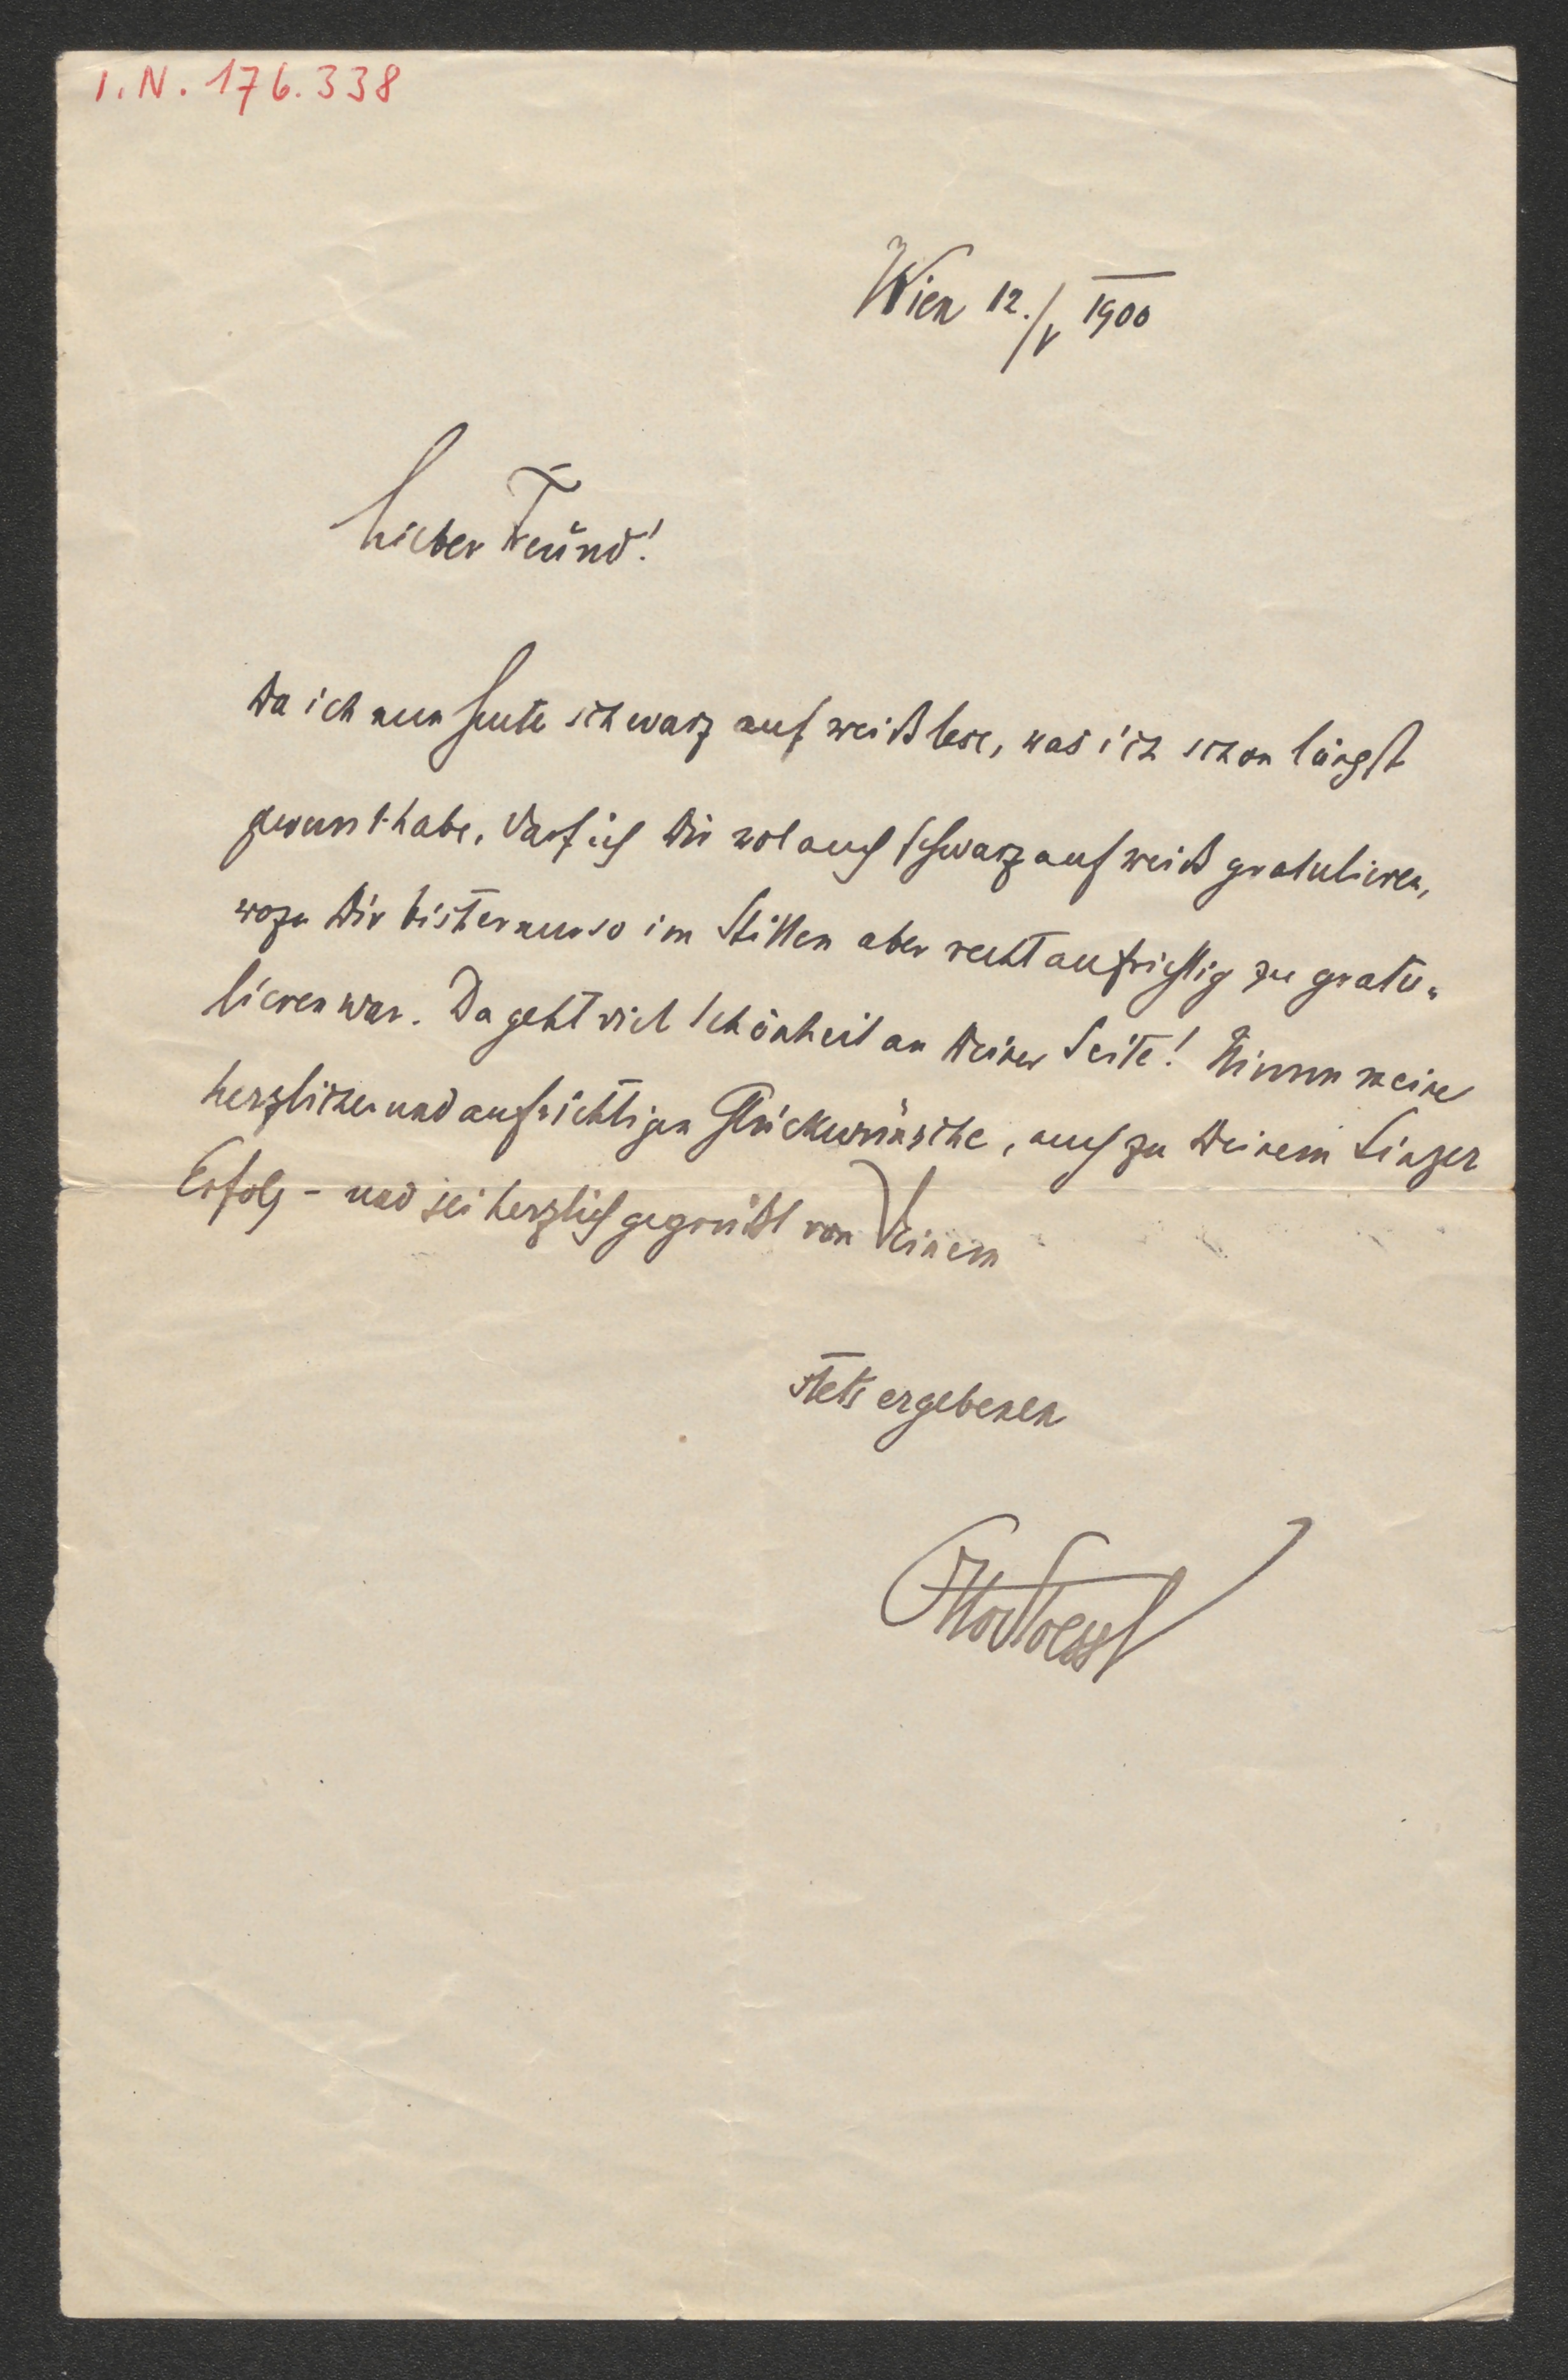 I.N. 176.338
Wien 12./V 1900
Lieber Freund!
Da ich nun heute schwarz auf weiß lese, was ich schon längst
gewusst habe, darf ich Dir wol auch schwarz auf weiß gratulieren,
wozu Dir bisher nur so im Stillen aber recht aufrichtig zu gratu-
lieren war. Da geht viel Schönheit an Deiner Seite! Nimm meine
herzlichen und aufrichtigen Glückwünsche, auch zu Deinem Linzer
Erfolg – und sei herzlich gegrüßt von Deinem
stets ergebenen
Otto Stoessl